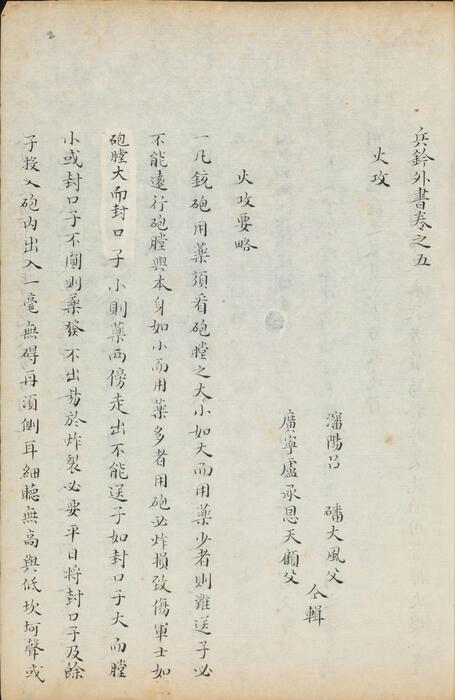 兵鈐外書卷之五
火攻
瀋陽呂 磻大風父
廣寧盧承恩天顧父
仝輯
火攻要略
一凡銃砲用藥須看砲膛之大小如大而用藥少者則難送子必
不能遠行砲膛與本身如小而用藥多者用砲必炸損致傷軍士如
砲膛大而封口子小則藥兩傍走出不能送子如封口子大而膛
小或封口子不圓則藥發不出易於炸裂必要平日將封口子及餘
子投入砲內出入一毫無碍再須側耳細聽無高與低坎坷聲或
2